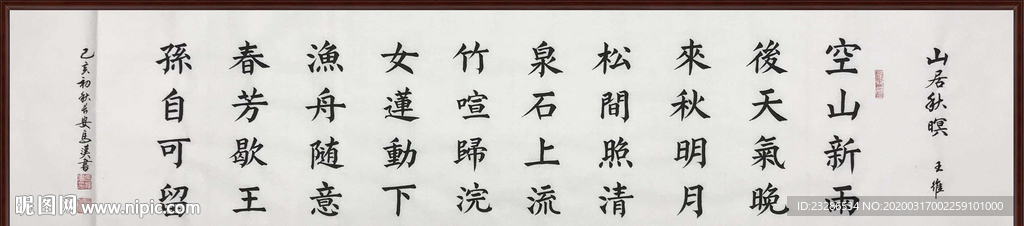 山居秋暝 王維
空山新雨
後天氣晚
來秋明月
松間照清
泉石上流
竹喧歸浣
女蓮動下
漁舟随意
春芳歇王
孫自可留
己亥初秋長安書
昵图网 www.nipic.com
ID:23286534 NO:20200317002259101000